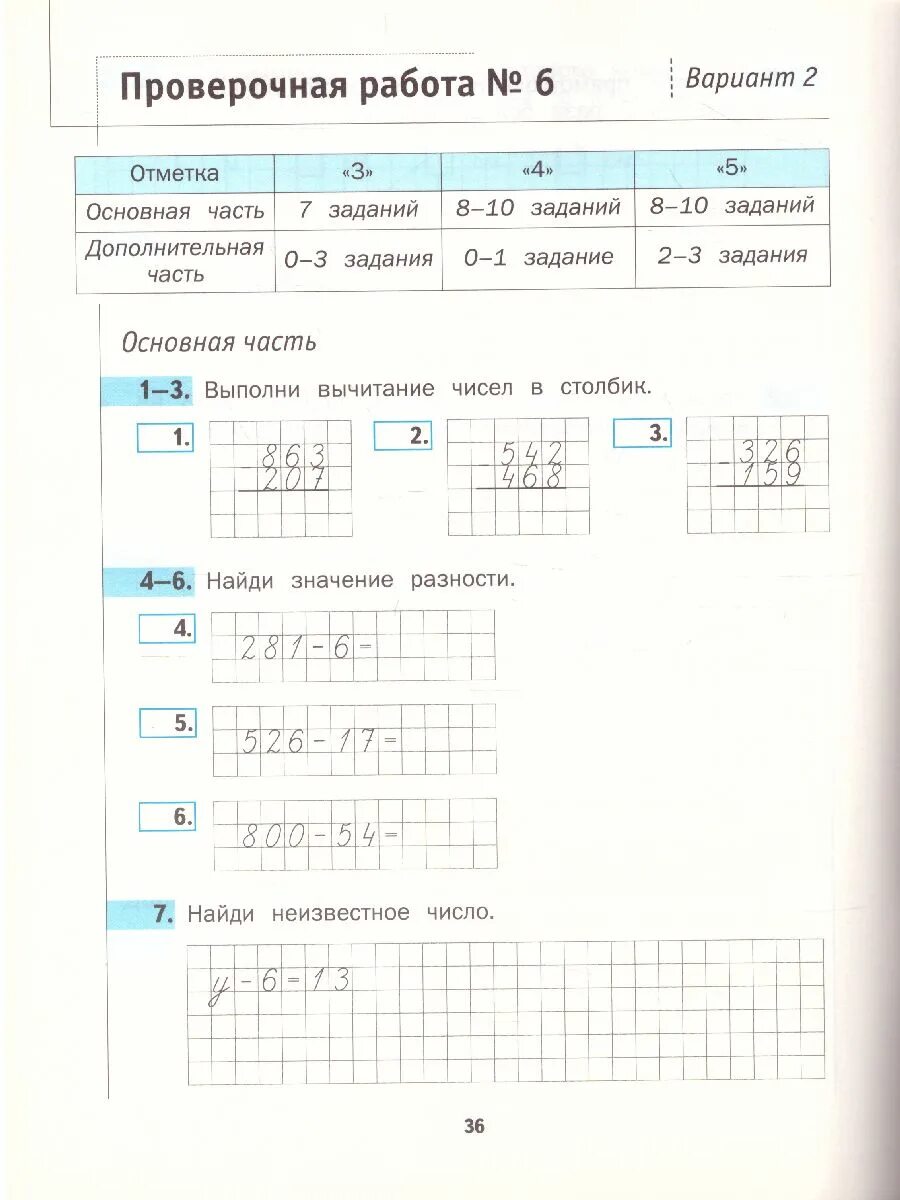 Проверочная работа № 6
Вариант 2
Отметка «3» «4» «5»
Основная часть 7 заданий 8–10 заданий 8–10 заданий
Дополнительная часть 0–3 задания 0–1 задание 2–3 задания
Основная часть
1–3. Выполни вычитание чисел в столбик.
1. 2. 3.
863 - 542 - 326
207 468 159
4–6. Найди значение разности.
4. 281-6=
5. 526-17=
6. 800-54=
7. Найди неизвестное число.
у-6=13
36